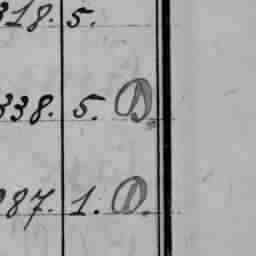 318. 5.
338. 5. D.
987. 1. D.